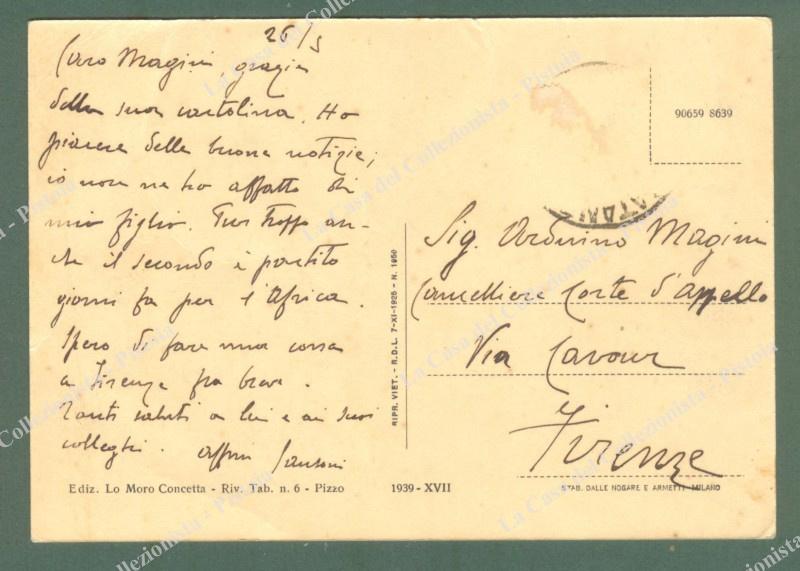 26/5
Caro Magini, grazie
della sua cartolina. Ho
piacere delle buone notizie;
io non ne ho affatto di
mio figlio. Pur troppo an-
che il secondo è partito
giorni fa per l'Africa.
Spero di fare una corsa
a Firenze fra breve.
Tanti saluti a lei e ai suoi
colleghi. affmo Santoni
Ediz. Lo Moro Concetta - Riv. Tab. n. 6 - Pizzo
1939 - XVII
RIPR. VIET. - R.D.L. 7-XI-1925 - N. 1950
90659 8639
Sig. Arduino Magini
Cancelliere Corte d'Appello
Via Cavour
Firenze
STAB. DALLE NOGARE E ARMETTI - MILANO
La Casa del Collezionista - Pistoia